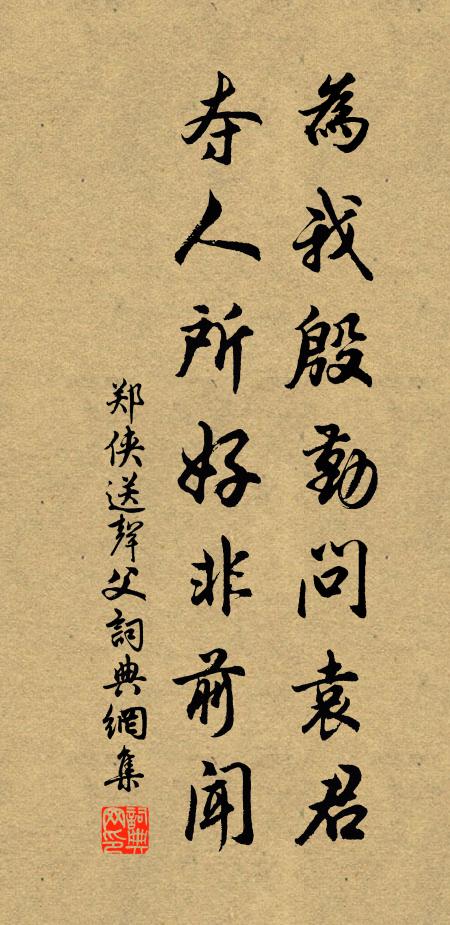 為我殷勤問袁君
夺人所好非前闻
郑侠送聲父詞典網集
詞典网印